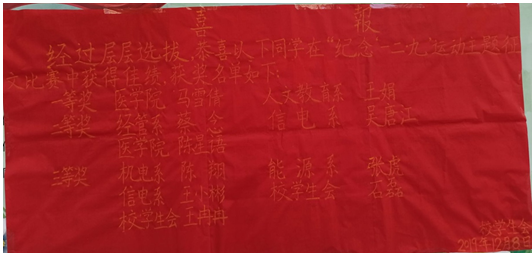 喜 报
经过层层选拔,恭喜以下同学在“纪念一二九”运动主题征
文比赛中获得佳绩,获奖名单如下:
一等奖 医学院 马雪倩 人文教育系 王娟
二等奖 经管系 蔡念 信电系 吴居江
医学院 陈
三等奖 机电系 陈翔 能源系 张虎
信电系 王小彬 校学生会 石磊
校学生会 王冉冉
校学生会
12月8日